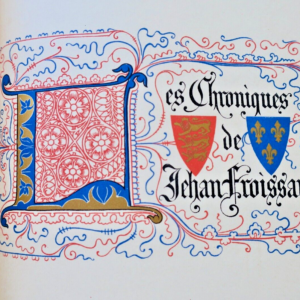 Les Chroniques
de
Jehan Froissar